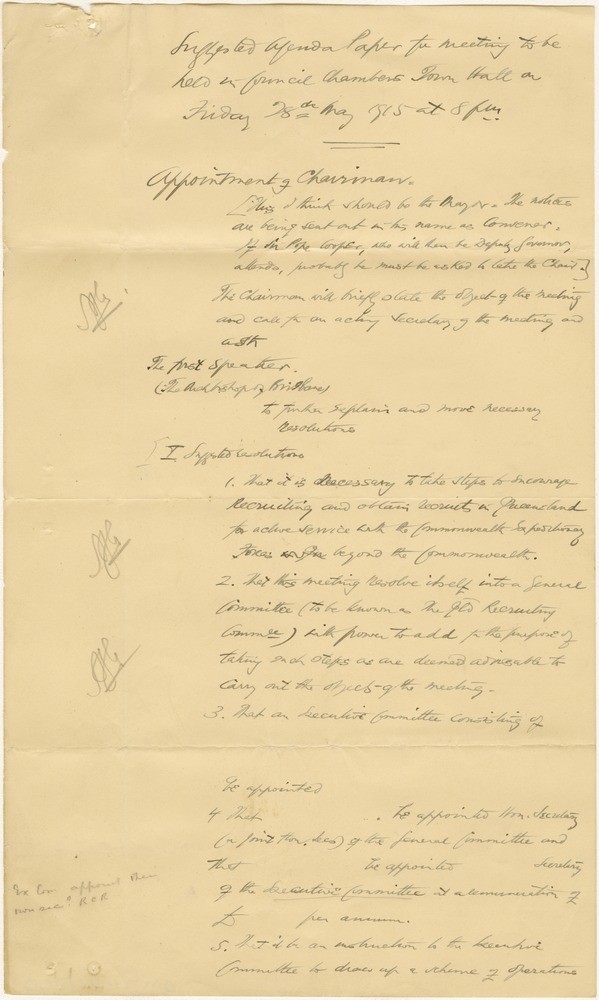 Suggested Agenda Paper for meeting to be
held in Council Chambers Town Hall on
Friday 28th May 1915 at 8 pm
Appointment of Chairman.
[This I think should be the Mayor. The notices
are being sent out in his name as Convener.
If Sir Pope Cooper, who will then be Deputy Governor,
attends, probably he must be asked to take the Chair.]
The Chairman will briefly state the object of the meeting
and call for an acting Secretary of the meeting and
ask
The first Speaker.
(The Archbishop of Brisbane)
to further explain and move necessary
resolutions
I Suggested resolutions
1. That it is necessary to take steps to encourage
recruiting and obtain recruits in Queensland
for active service with the Commonwealth Expeditionary
Forces beyond the Commonwealth.
2. That this meeting resolve itself into a General
Committee (to be known as The Qld Recruiting
Commee) with power to add for the purpose of
taking such steps as are deemed advisable to
carry out the objects of the meeting.
3. That an Executive Committee consisting of
be appointed
4 That . be appointed Hon. Secretary
(or Joint Hon. Secs) of the General Committee and
that be appointed Secretary
of the Executive Committee at a remuneration of
£ per annum.
5. That it be an instruction to the Executive
Committee to draw up a scheme of operations
Ex Com appoint their